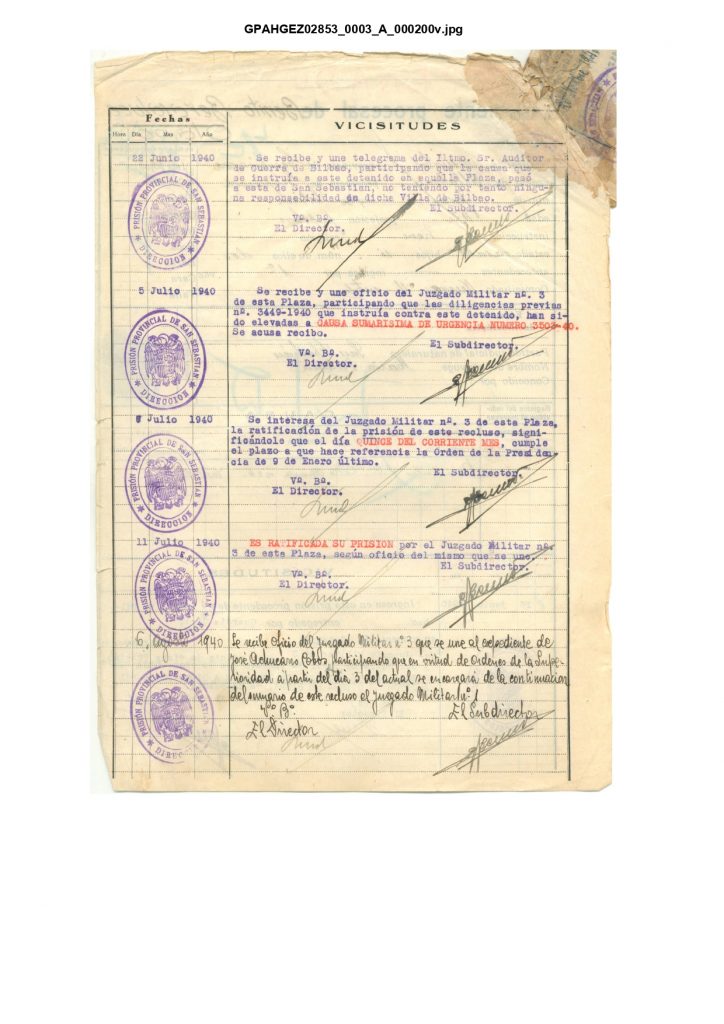 GPAHGEZ02853_0003_A_000200v.jpg
Fechas
Hora Día Mes Año
VICISITUDES
22 Junio 1940
Se recibe y une telegrama del Iltmo. Sr. Auditor
de Guerra de Bilbao, participando que la causa que
se instruía a este detenido en aquella Plaza, pasó
a esta de San Sebastián, no teniendo por tanto ningu-
na responsabilidad en dicha Villa de Bilbao.
Vº. Bº. El Subdirector.
El Director.
PRISIÓN PROVINCIAL DE SAN SEBASTIAN
DIRECCION
5 Julio 1940
Se recibe y une oficio del Juzgado Militar nº. 3
de esta Plaza, participando que las diligencias previas
nº. 3449-1940 que instruía contra este detenido, han si-
do elevadas a CAUSA SUMARISIMA DE URGENCIA NUMERO 3503-40.
Se acusa recibo.
Vº. Bº. El Subdirector.
El Director.
PRISIÓN PROVINCIAL DE SAN SEBASTIAN
DIRECCION
Julio 1940
Se interesa del Juzgado Militar nº. 3 de esta Plaza,
la ratificación de la prisión de este recluso, signi-
ficándole que el día QUINCE DEL CORRIENTE MES, cumple
el plazo a que hace referencia la Orden de la Presiden
cia de 9 de Enero último.
Vº. Bº. El Subdirector.
El Director.
PRISIÓN PROVINCIAL DE SAN SEBASTIAN
DIRECCION
11 Julio 1940
ES RATIFICADA SU PRISION por el Juzgado Militar nº.
3 de esta Plaza, según oficio del mismo que se une.
Vº. Bº. El Subdirector.
El Director.
PRISIÓN PROVINCIAL DE SAN SEBASTIAN
DIRECCION
6 Agosto 1940
Se recibe Oficio del Juzgado Militar nº 3 que se une al expediente de
José participando que en virtud de Ordenes de la Supe-
rioridad a partir del día 3 del actual se encargará de la continuación
del sumario de este recluso el Juzgado Militar nº 1
Vº Bº El Subdirector
El Director
PRISIÓN PROVINCIAL DE SAN SEBASTIAN
DIRECCION